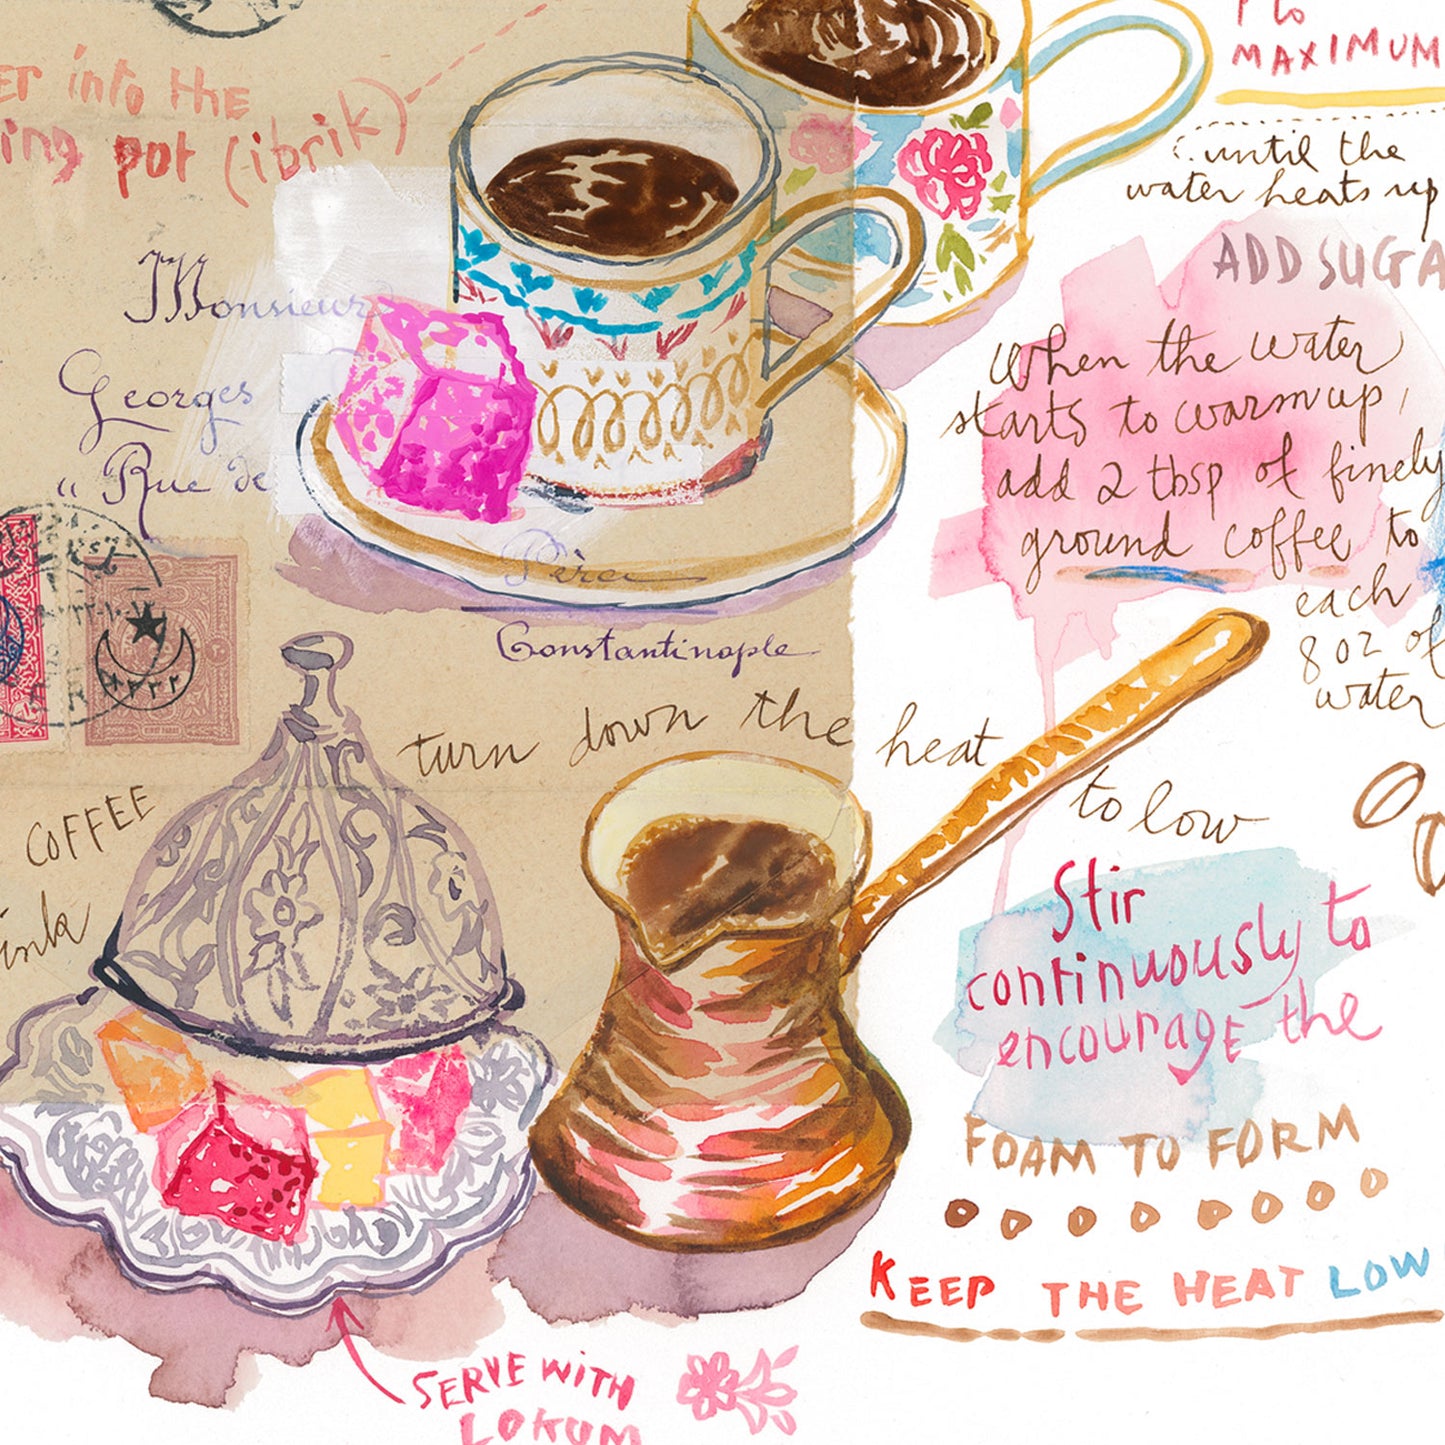 er into the
ing pot (ibrik)
Monsieur
Georges
" Rue de
Péra
Constantinople
COFFEE
ink
to
MAXIMUM
until the
water heats up
ADD SUGA
When the water
starts to warm up,
add 2 tbsp of finely
ground coffee to
each
8 oz of
water
turn down the heat
to low
Stir
continuously to
encourage the
FOAM TO FORM
KEEP THE HEAT LOW
SERVE WITH
LOKUM